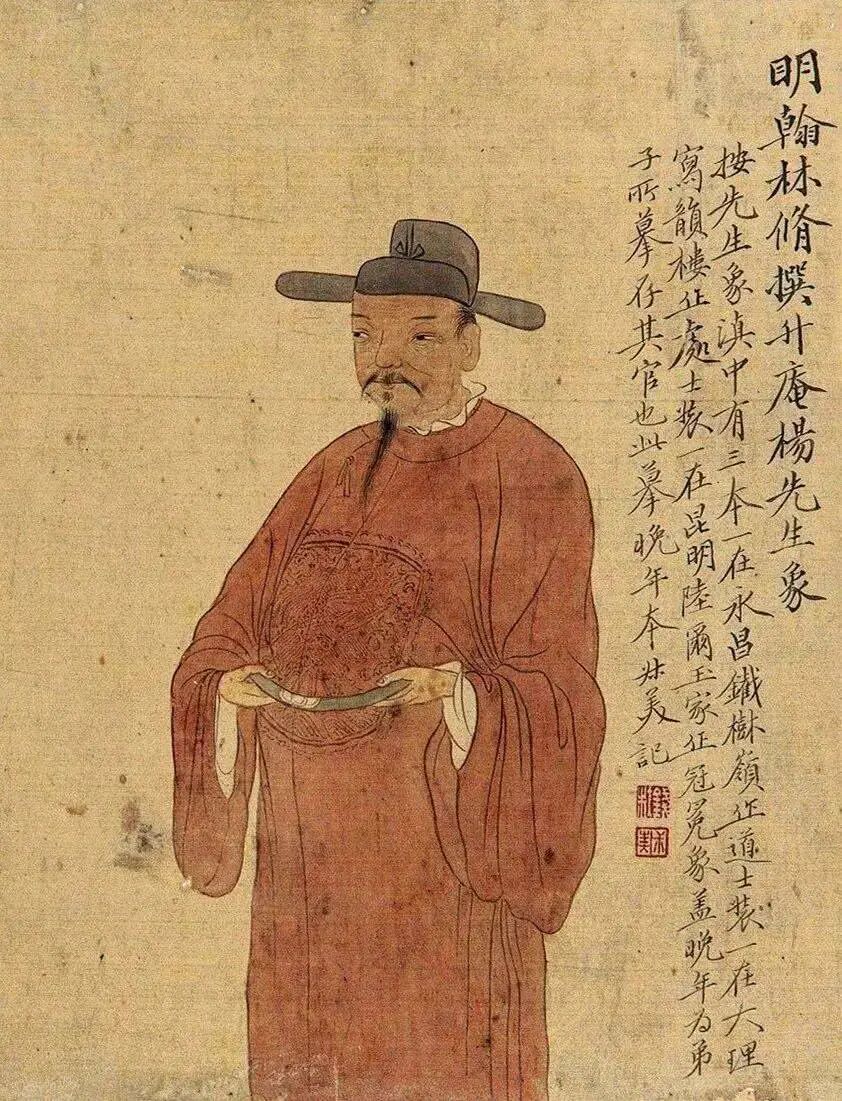 明翰林脩撰升庵楊先生象
按先生象滇中有三本一在永昌鐵樹嶺作道士装一在大理
寫韻樓作處士装一在昆明陸爾玉家作冠冕象盖晚年为弟
子所摹存其官也此摹晚年本尗美記